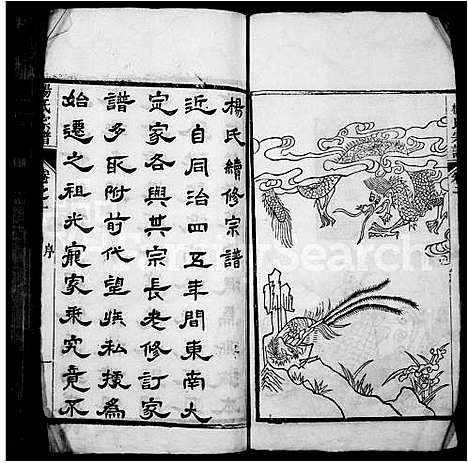 楊氏續修宗譜
近自同治四五年間東南大
定家各與其宗長老修訂家
譜多取附前代望族私擾為
始遷之祖光寵家乘究竟不
楊氏宗譜
卷之一
序